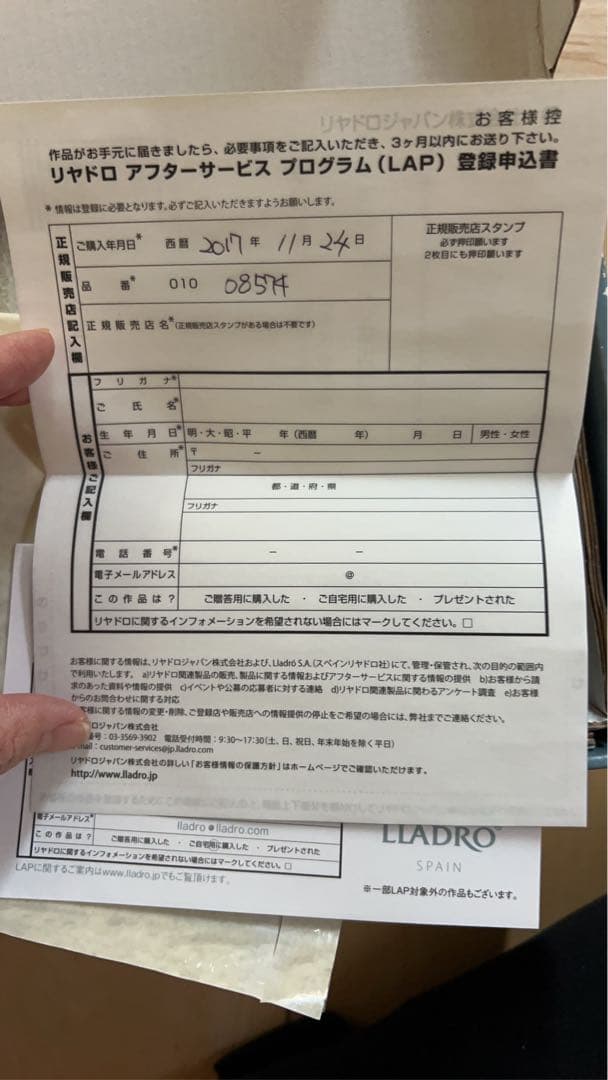 お客様控
作品がお手元に届きましたら、必要事項をご記入いただき、3ヶ月以内にお送り下さい。
リヤドロ アフターサービス プログラム(LAP) 登録申込書
* 情報は登録に必要となります。必ずご記入いただきますようお願いします。
正規販売店記入欄
ご購入年月日* 西暦 2017 年 11 月 24 日
品番* 010 08574
正規販売店名*(正規販売店スタンプがある場合は不要です)
正規販売店スタンプ
必ず押印願います
2枚目にも押印願います
お客様ご記入欄
フリガナ*
ご氏名*
生年月日* 明・大・昭・平 年(西暦 年) 月 日 男性・女性
ご住所* 〒 −
フリガナ
都・道・府・県
フリガナ
電話番号* − −
電子メールアドレス @
この作品は? ご贈答用に購入した ・ ご自宅用に購入した ・ プレゼントされた
リヤドロに関するインフォメーションを希望されない場合にはマークしてください。□
お客様に関する情報は、リヤドロジャパン株式会社および、Lladró S.A.(スペインリヤドロ社)にて、管理・保管され、次の目的の範囲内
で利用いたします。 a)リヤドロ関連製品の販売、製品に関する情報およびアフターサービスに関する情報の提供 b)お客様から請
求のあった資料や情報の提供 c)イベントや公募の応募者に対する連絡 d)リヤドロ関連製品に関わるアンケート調査 e)お客様
からのお問合わせに関する対応
客様に関する情報の変更・削除、ご登録店や販売店への情報提供の停止をご希望の場合には、弊社までご連絡ください。
ロジャパン株式会社
番号:03-3569-3902 電話受付時間:9:30〜17:30(土、日、祝日、年末年始を除く平日)
mail:customer-services@jp.lladro.com
リヤドロジャパン株式会社の詳しい「お客様情報の保護方針」はホームページでご確認いただけます。
http://www.lladro.jp
電子メールアドレス* lladro@lladro.com
この作品は? ご贈答用に購入した ・ ご自宅用に購入した ・ プレゼントされた
リヤドロに関するインフォメーションを希望されない場合にはマークしてください。□
LAPに関するご案内はwww.lladro.jpでもご覧頂けます。
LLADRÓ
SPAIN
※一部LAP対象外の作品もございます。